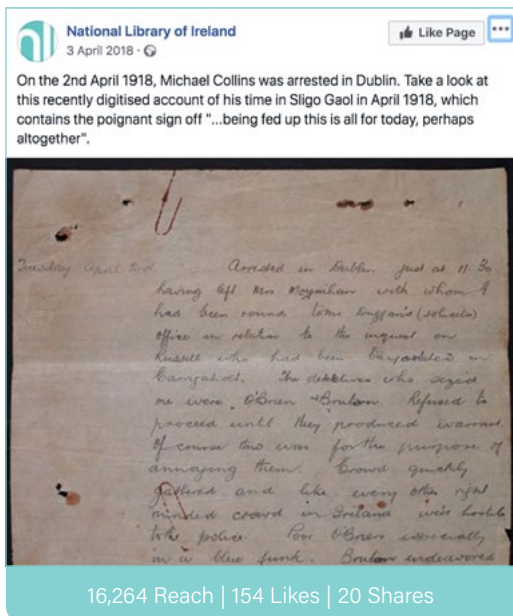 National Library of Ireland
3 April 2018
Like Page
On the 2nd April 1918, Michael Collins was arrested in Dublin. Take a look at
this recently digitised account of his time in Sligo Gaol in April 1918, which
contains the poignant sign off "...being fed up this is all for today, perhaps
altogether".
Tuesday April 2nd. Arrested in Dublin just at 11.30
having left Mrs Moynihan with whom I
had been round to Mr Duggan's (solicitor)
office in relation to the inquest on
Russell who had been bayonetted in
Carrigaholt. The detectives who seized
me were O'Brien & Bruton. Refused to
proceed until they produced warrant.
Of course this was for the purpose of
annoying them. Crowd quickly
gathered and like every other right
minded crowd in Ireland were hostile
to the police. Poor O'Brien especially
in a blue funk. Bruton endeavored
16,264 Reach | 154 Likes | 20 Shares